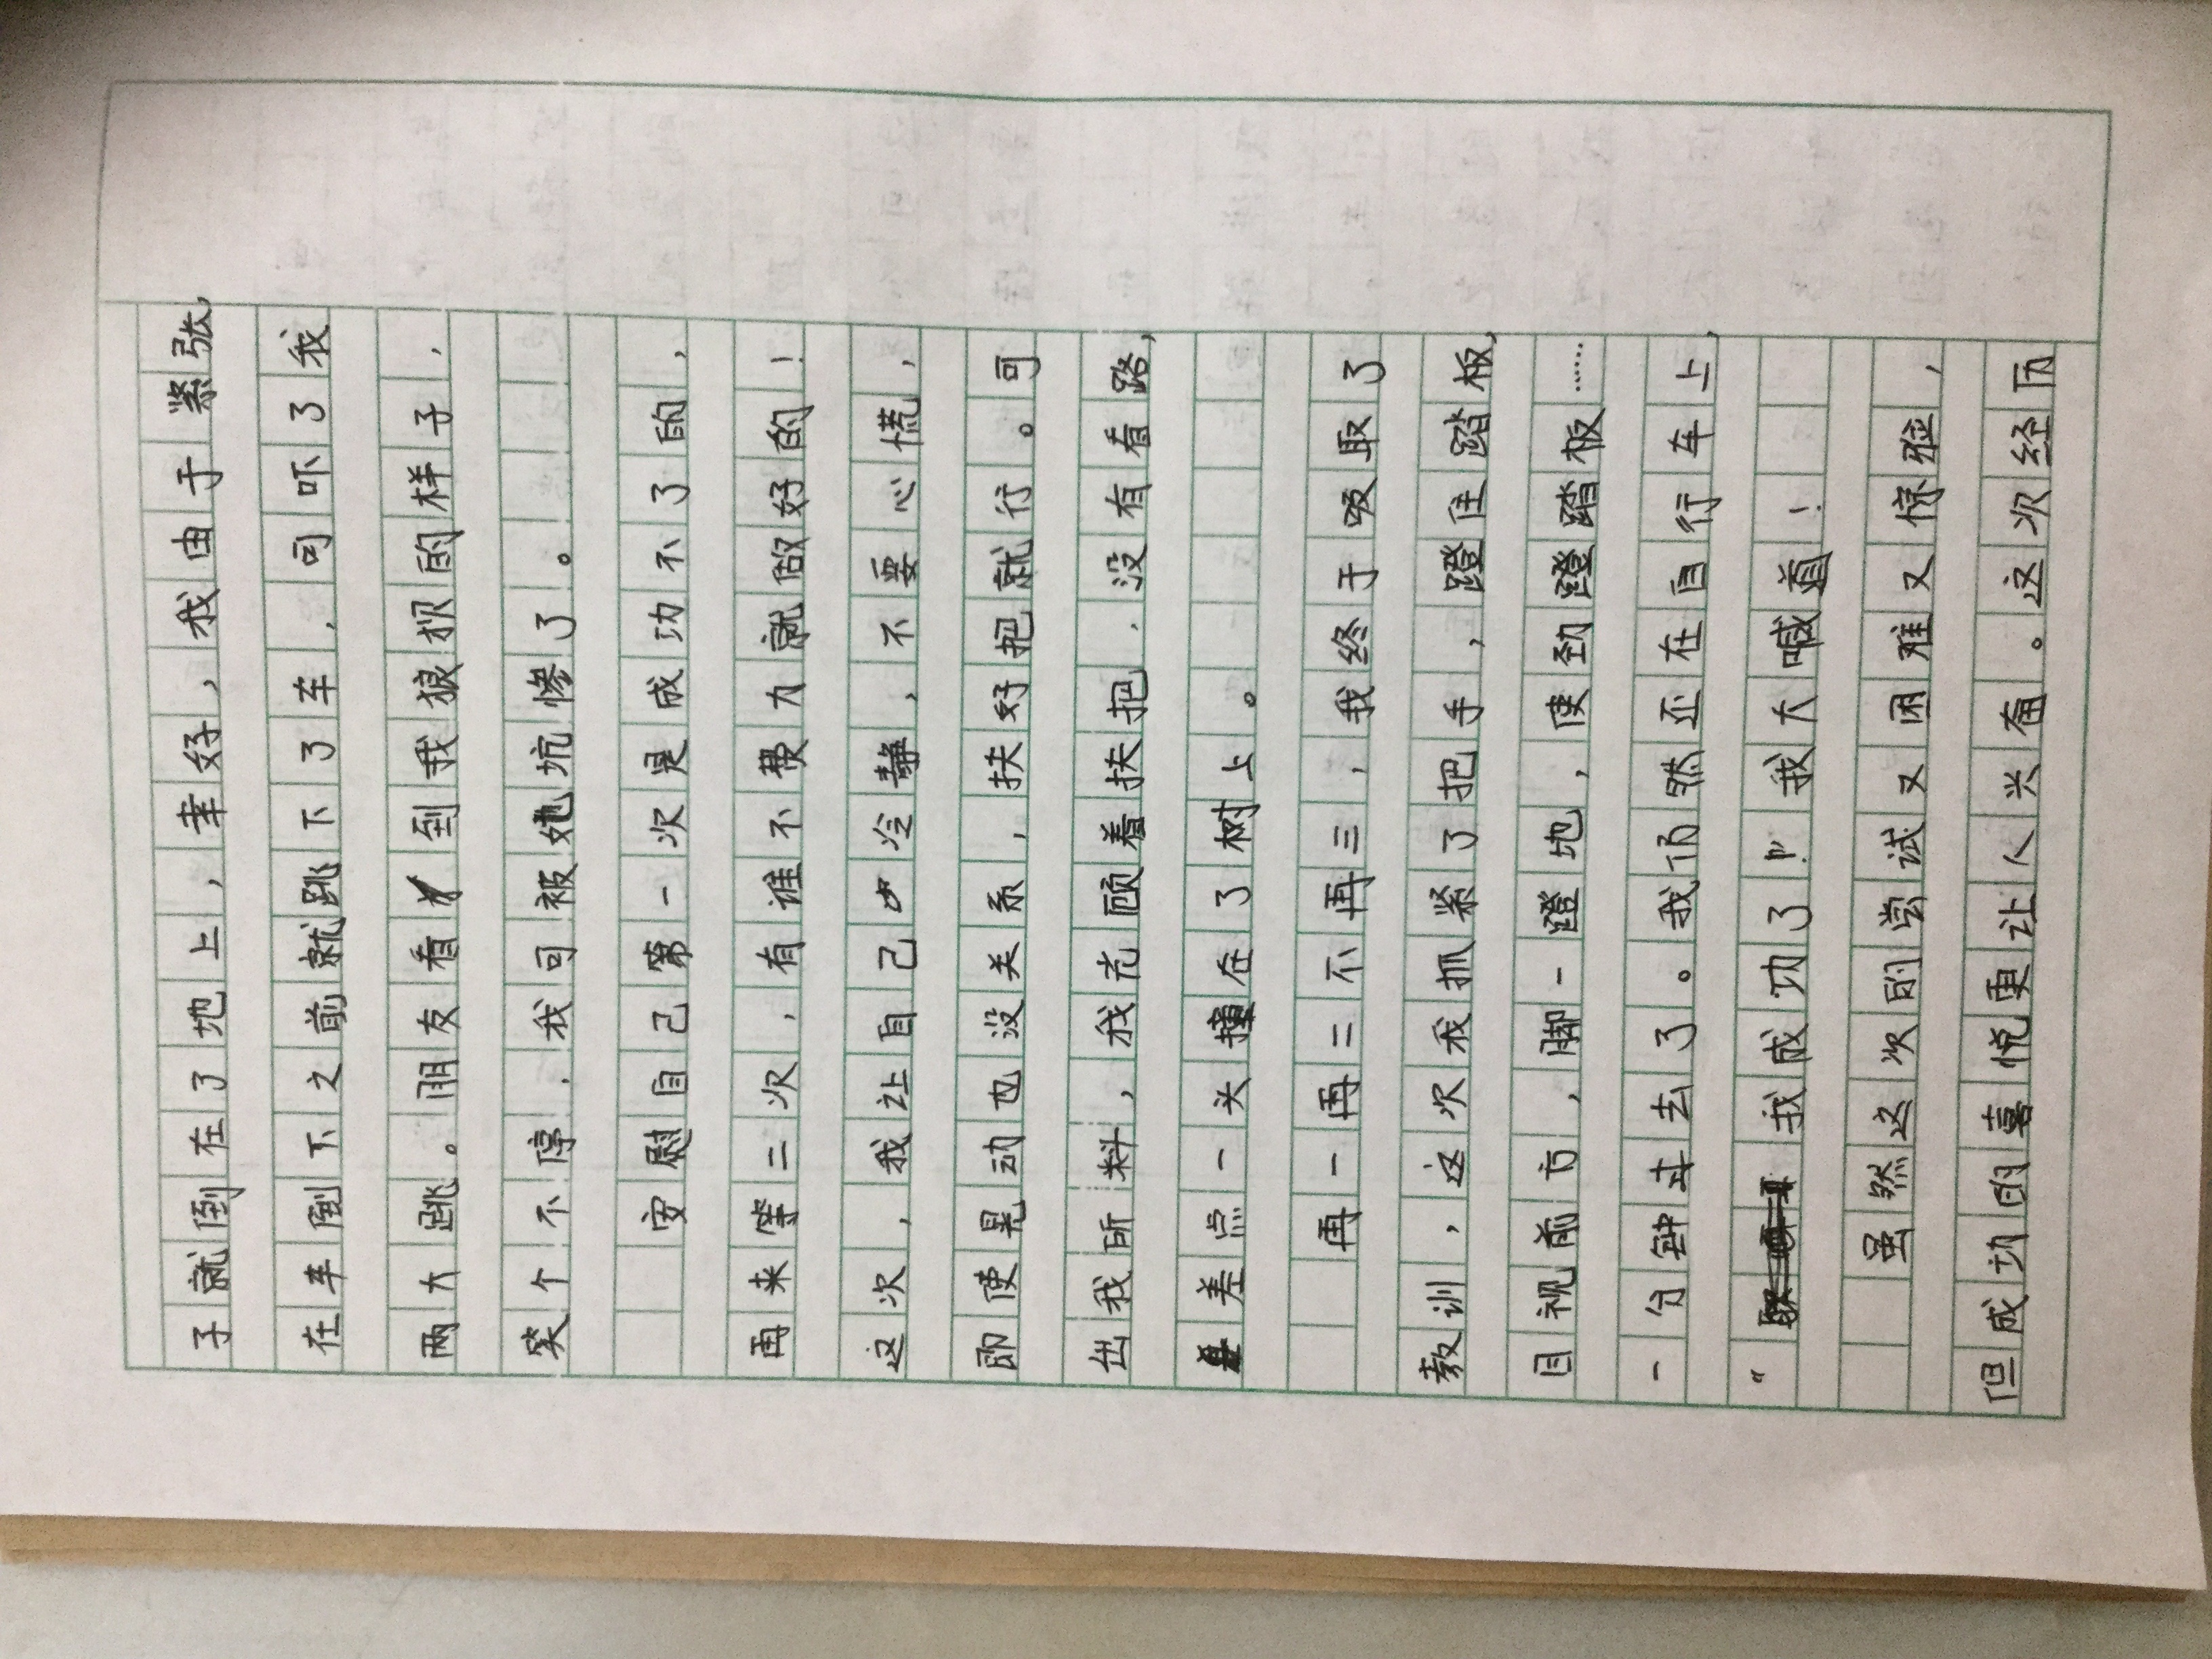 子就倒在了地上，幸好，我由于紧张，
在车倒下之前就跳下了车，可吓了我
两大跳。朋友看到我狼狈的样子，
笑个不停，我可被她坑惨了。
安慰自己第一次是成功不了的，
再来等二次，有谁不费力就做好的！
这次，我让自己冷静，不要心慌，
即使晃动也没关系，扶好把就行。可
出我所料，我光顾着扶把，没有看路，
差点一头撞在了树上。
再一再二不再三，我终于吸取了
教训，这次我抓紧了把手，蹬住踏板，
目视前方，脚一蹬地，使劲蹬踏板……
一分钟过去了。我仍然还在自行车上，
“我成功了！”我大喊道！
虽然这次的尝试又困难又惊险，
但成功的喜悦更让人兴奋。这次经历